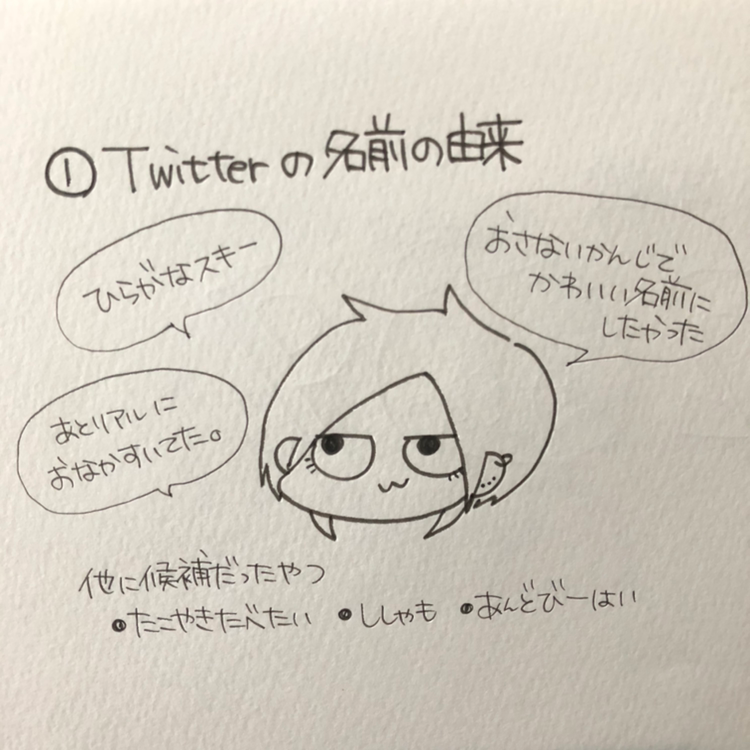 ① Twitterの名前の由来
ひらがなスキー
おさないかんじで
かわいい名前に
したかった
あとリアルに
おなかすいてた。
他に候補だったやつ
●たこやきたべたい ●ししゃも ●あんどびーはい